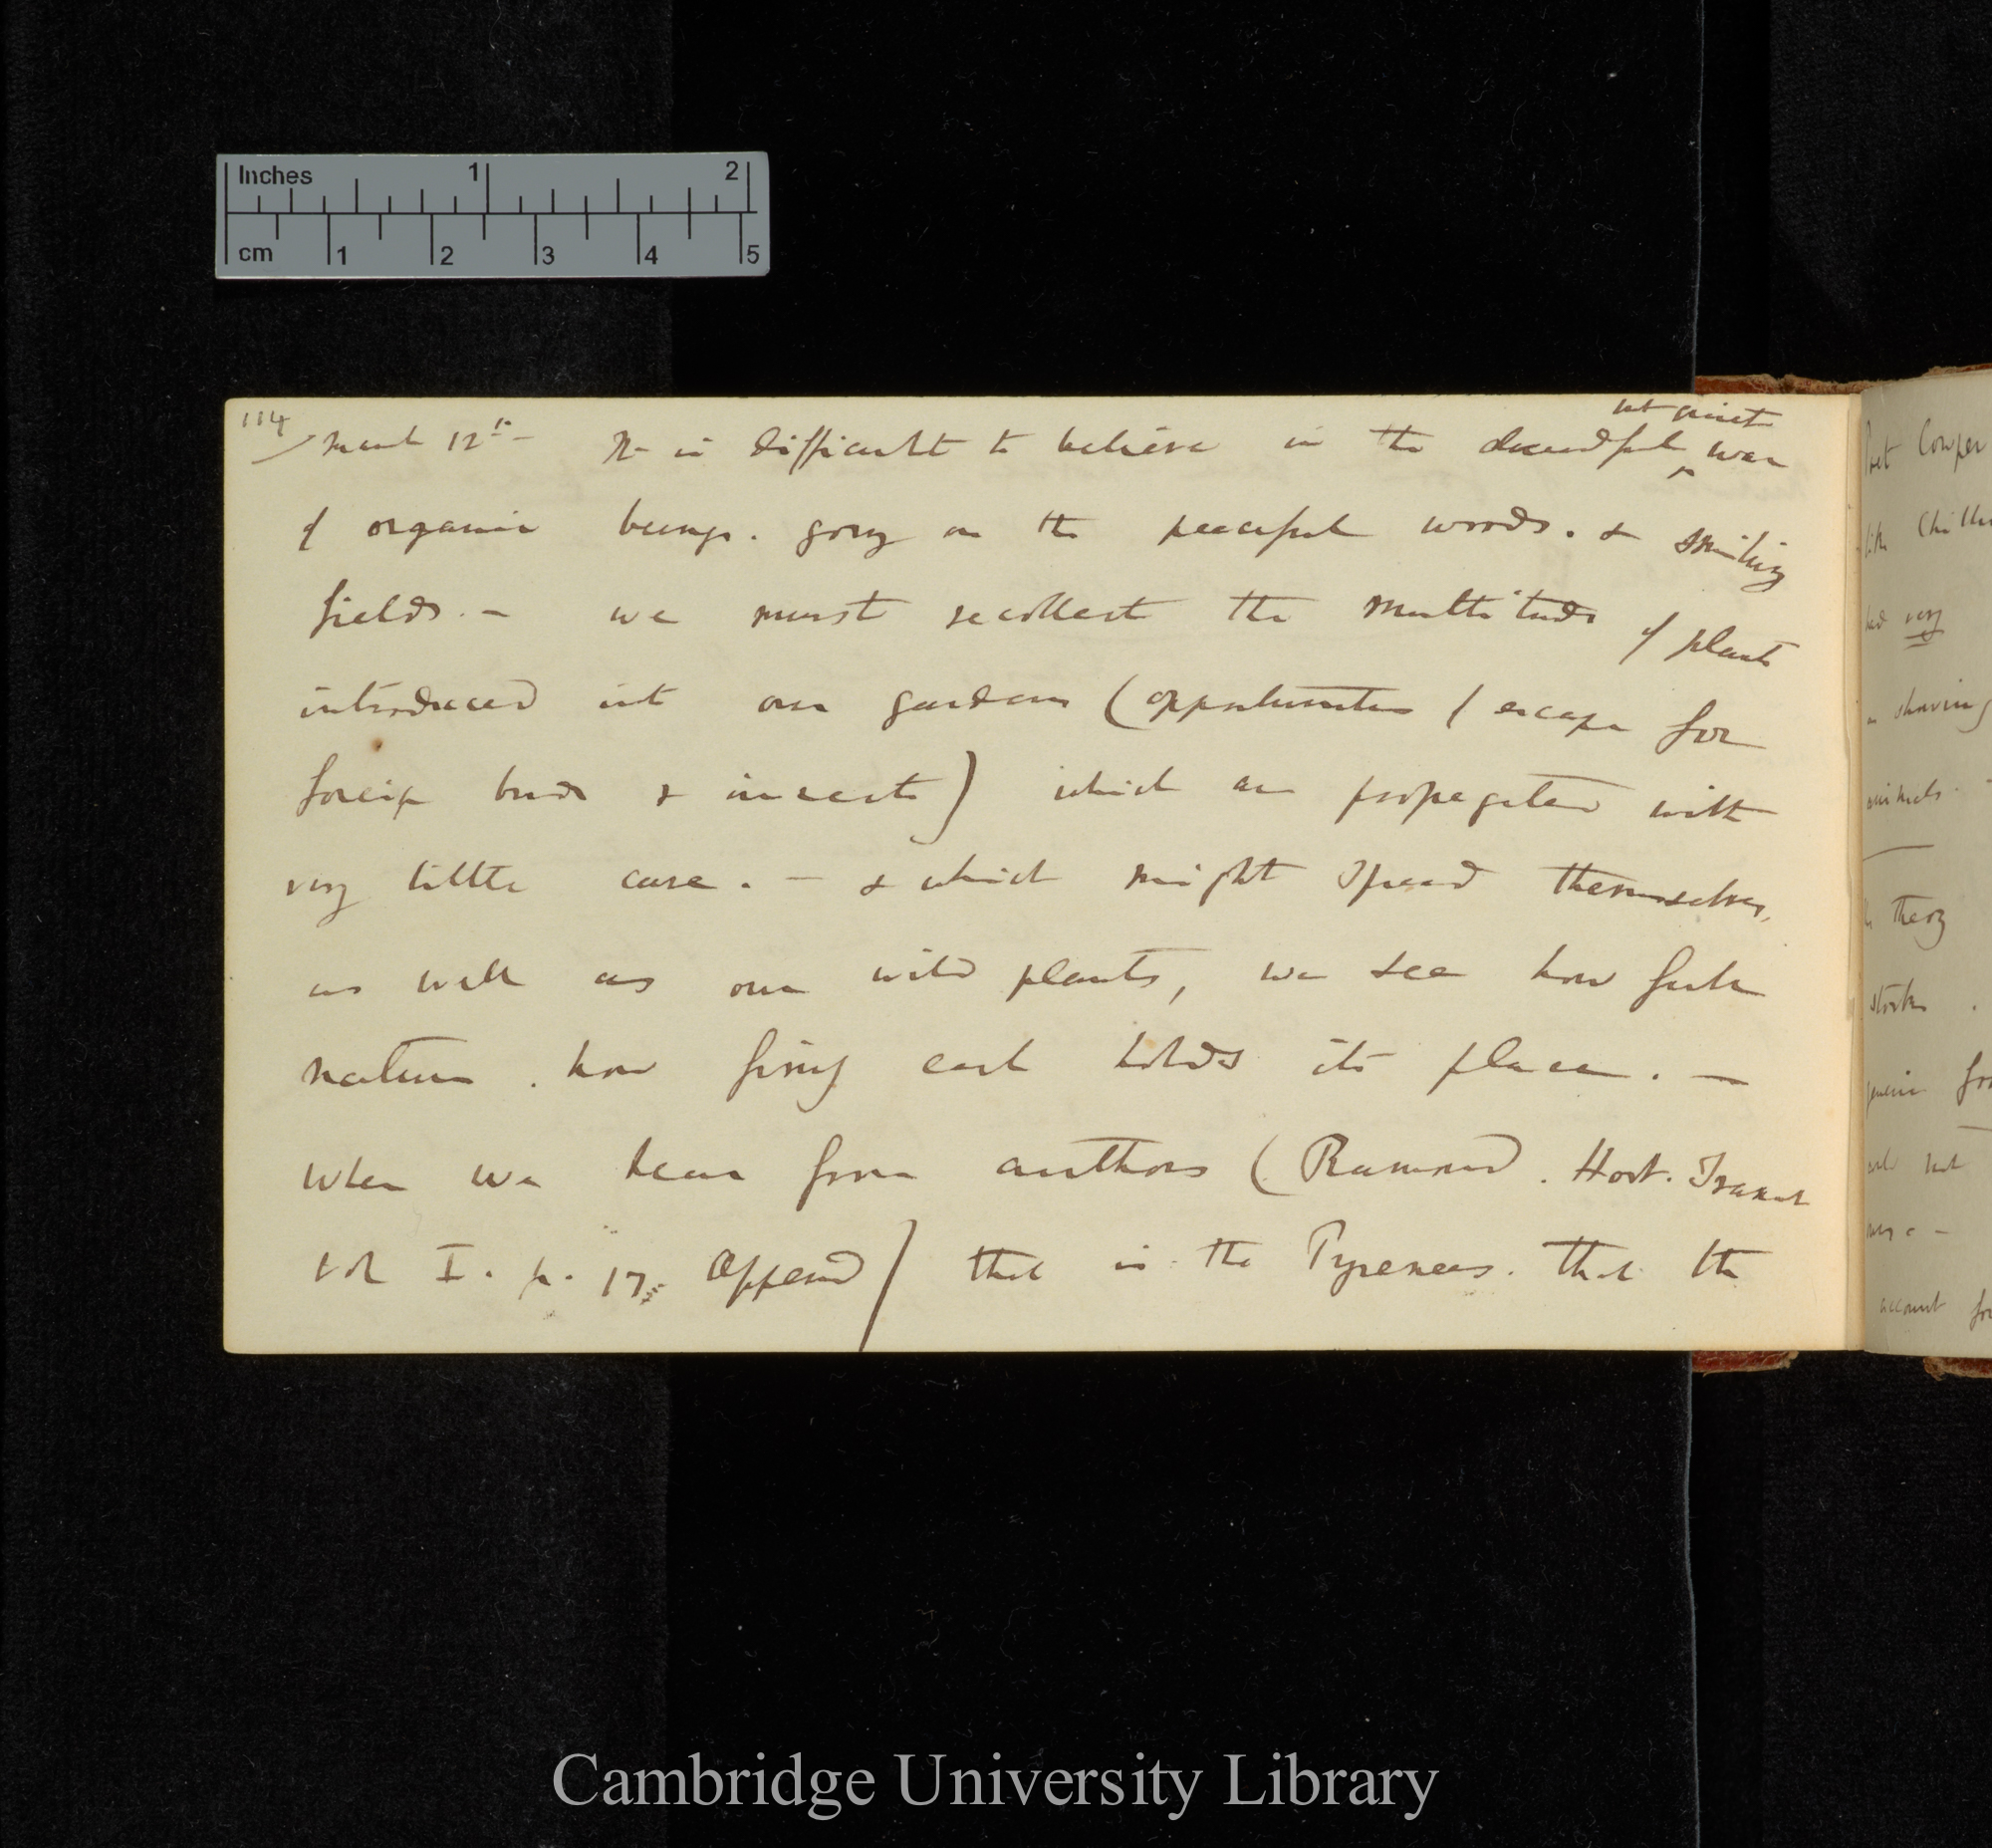 Inches 1 2
cm 1 2 3 4 5
114
but quiet
March 12th – It is difficult to believe in the dreadful ^ war
of organic beings. going on the peaceful woods. & smiling
fields. – we must recollect the multitude of plants
introduced into our gardens (opportunities of escape for
foreign birds & insects) which are propagated with
very little care. – & which might spread themselves,
as well as our wild plants, we see how full
nature, how finely each holds its place. –
When we hear from authors (Ramond. Hort. Transact
vol I. p. 17 Append) that in the Pyrenees. that the
Cowper
very
shaving
animals.
theory
account
Cambridge University Library